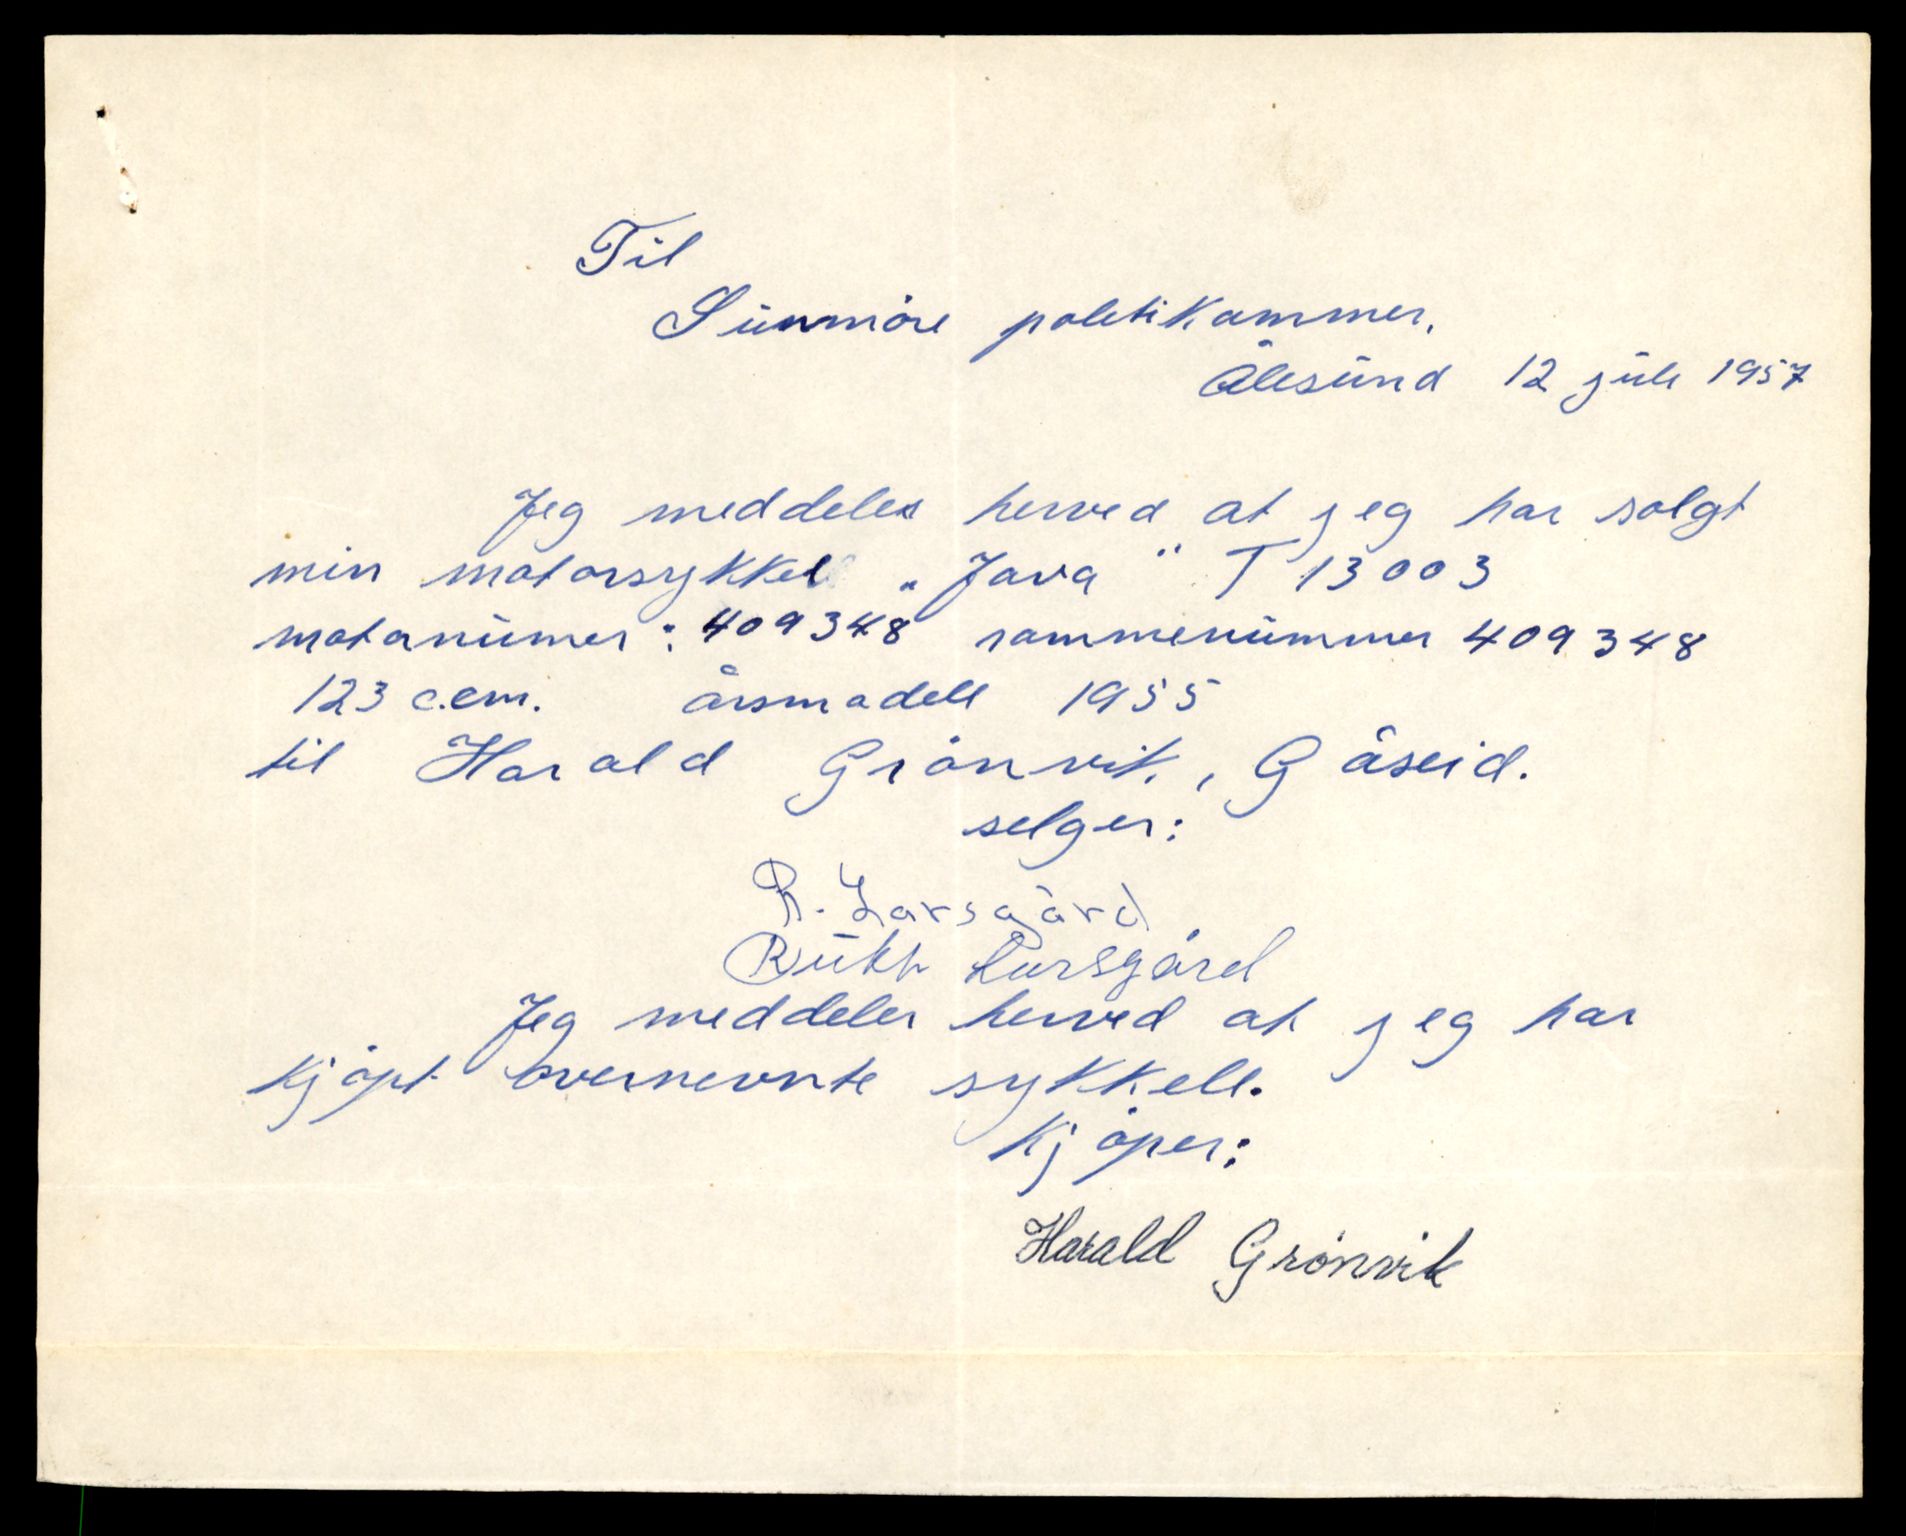 Til
Sunmöre politikammer.
Ålesund 12 juli 1957
Jeg meddeler herved at jeg har solgt
min motorsykkel "Java" T 13003
motornumer: 409348 rammenummer 409348
123 c.cm. årsmodell 1955
til Harald Grönvik, Gåseid.
selger:
R. Larsgård
Larsgård
Jeg meddeler herved at jeg har
kjöpt overnevnte sykkell.
Kjöper:
Harald Grönvik